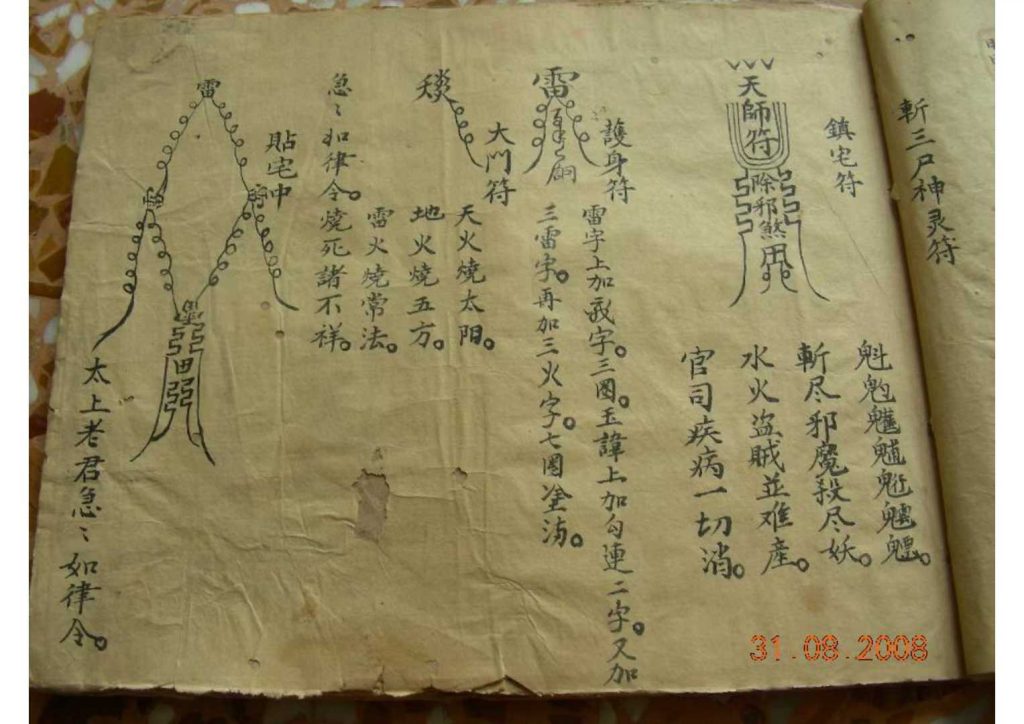 斬三尸神灵符
鎮宅符
天師符
除邪煞
斬尽邪魔殺尽妖。
水火盜賊並难產。
官司疾病一切消。
護身符
雷字上加 字。三圈。玉諱上加勾連二字。又加
三雷字。再加三火字。七圈 。
雷
大門符
天火燒太阳。
地火燒五方。
雷火燒常法。
急〻如律令。燒死諸不祥。
貼宅中
雷
田
太上老君急〻如律令。
31.08.2008